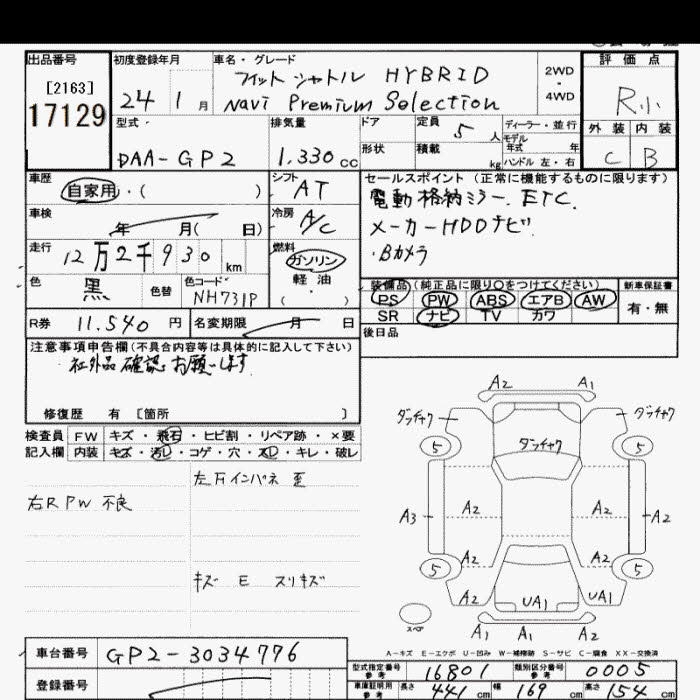 出品番号
[2163]
17129
初度登録年月
24 1 月
車名・グレード
フィット シャトル HYBRID
Navi Premium Selection
2WD
・
4WD
評価点
R小
外装 内装
C B
型式
DAA-GP2
排気量
1.330 cc
ドア
形状
定員 5 人
積載 kg
ディーラー・並行
モデル
年式 年
ハンドル 左・右
車歴
自家用・( )
シフト
AT
車検
年 月( 日)
冷房
A/C
走行
12万2千930 km
燃料
ガソリン
軽油
( )
色
黒
色替
色コード
NH731P
R券 11.540 円
名変期限 月 日
セールスポイント(正常に機能するものに限ります)
電動格納ミラー. ETC.
メーカーHDDナビ
・Bカメラ
装備品(純正品に限り○をつけてください)
PS PW ABS エアB AW
SR ナビ TV カワ
新車保証書
有・無
後日品
注意事項申告欄(不具合内容等は具体的に記入して下さい)
社外品確認お願いします
修復歴 有 [箇所 ]
検査員
記入欄
FW キズ・飛石・ヒビ割・リペア跡・×要
内装 キズ・汚レ・コゲ・穴・スレ・キレ・破レ
右RPW不良
左Fインパネ
キズ E スリキズ
A2 A1
ダッチャク ダッチャク
5 ダッチャク 5
A2 A2
A3 A2
A2 A2
5 5
A2 UA1 A2
スペア
A1 A1 A2
A-キズ E-エクボ U-凹み W-補修跡 S-サビ C-腐食 XX-交換済
車台番号 GP2-3034776
登録番号
型式指定番号
参考
16801
類別区分番号
参考
0005
車庫証明用
参考
長さ 441 cm 幅 169 cm 高さ 154 cm